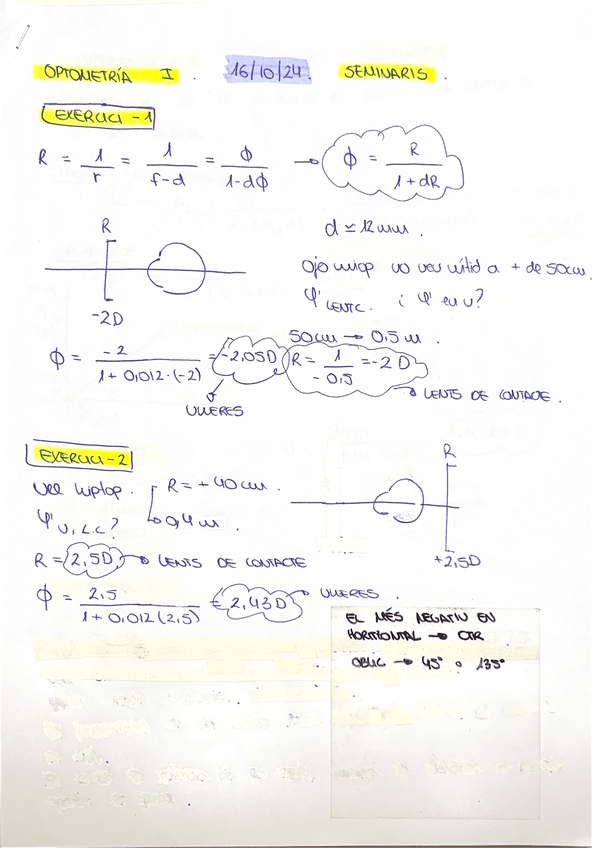 OPTOMETRÍA I . 16/10/24. SEMINARIS .
EXERCICI - 1
R = 1/r = 1/(f-d) = Φ/(1-dΦ) → Φ = R/(1+dR)
R
d ≃ 12mm .
-2D
Ojo miop no veu nítid a + de 50cm.
φ' LENTC. i φ' en v?
50cm → 0,5 m .
Φ = -2/(1+0,012·(-2)) = -2,05D
R = 1/-0,5 = -2D
→ LENTS DE CONTACTE .
ULLERES
EXERCICI - 2
Ull hiptop . R = +40cm .
→ 0,4 m .
φ' v, L.C?
R
+2,5D
R = 2,5D → LENTS DE CONTACTE
Φ = 2,5/(1+0,012(2,5)) = 2,43D → ULLERES .
EL MÉS NEGATIU EN
HORITZONTAL → CTR
OBLIC → 45° o 135°